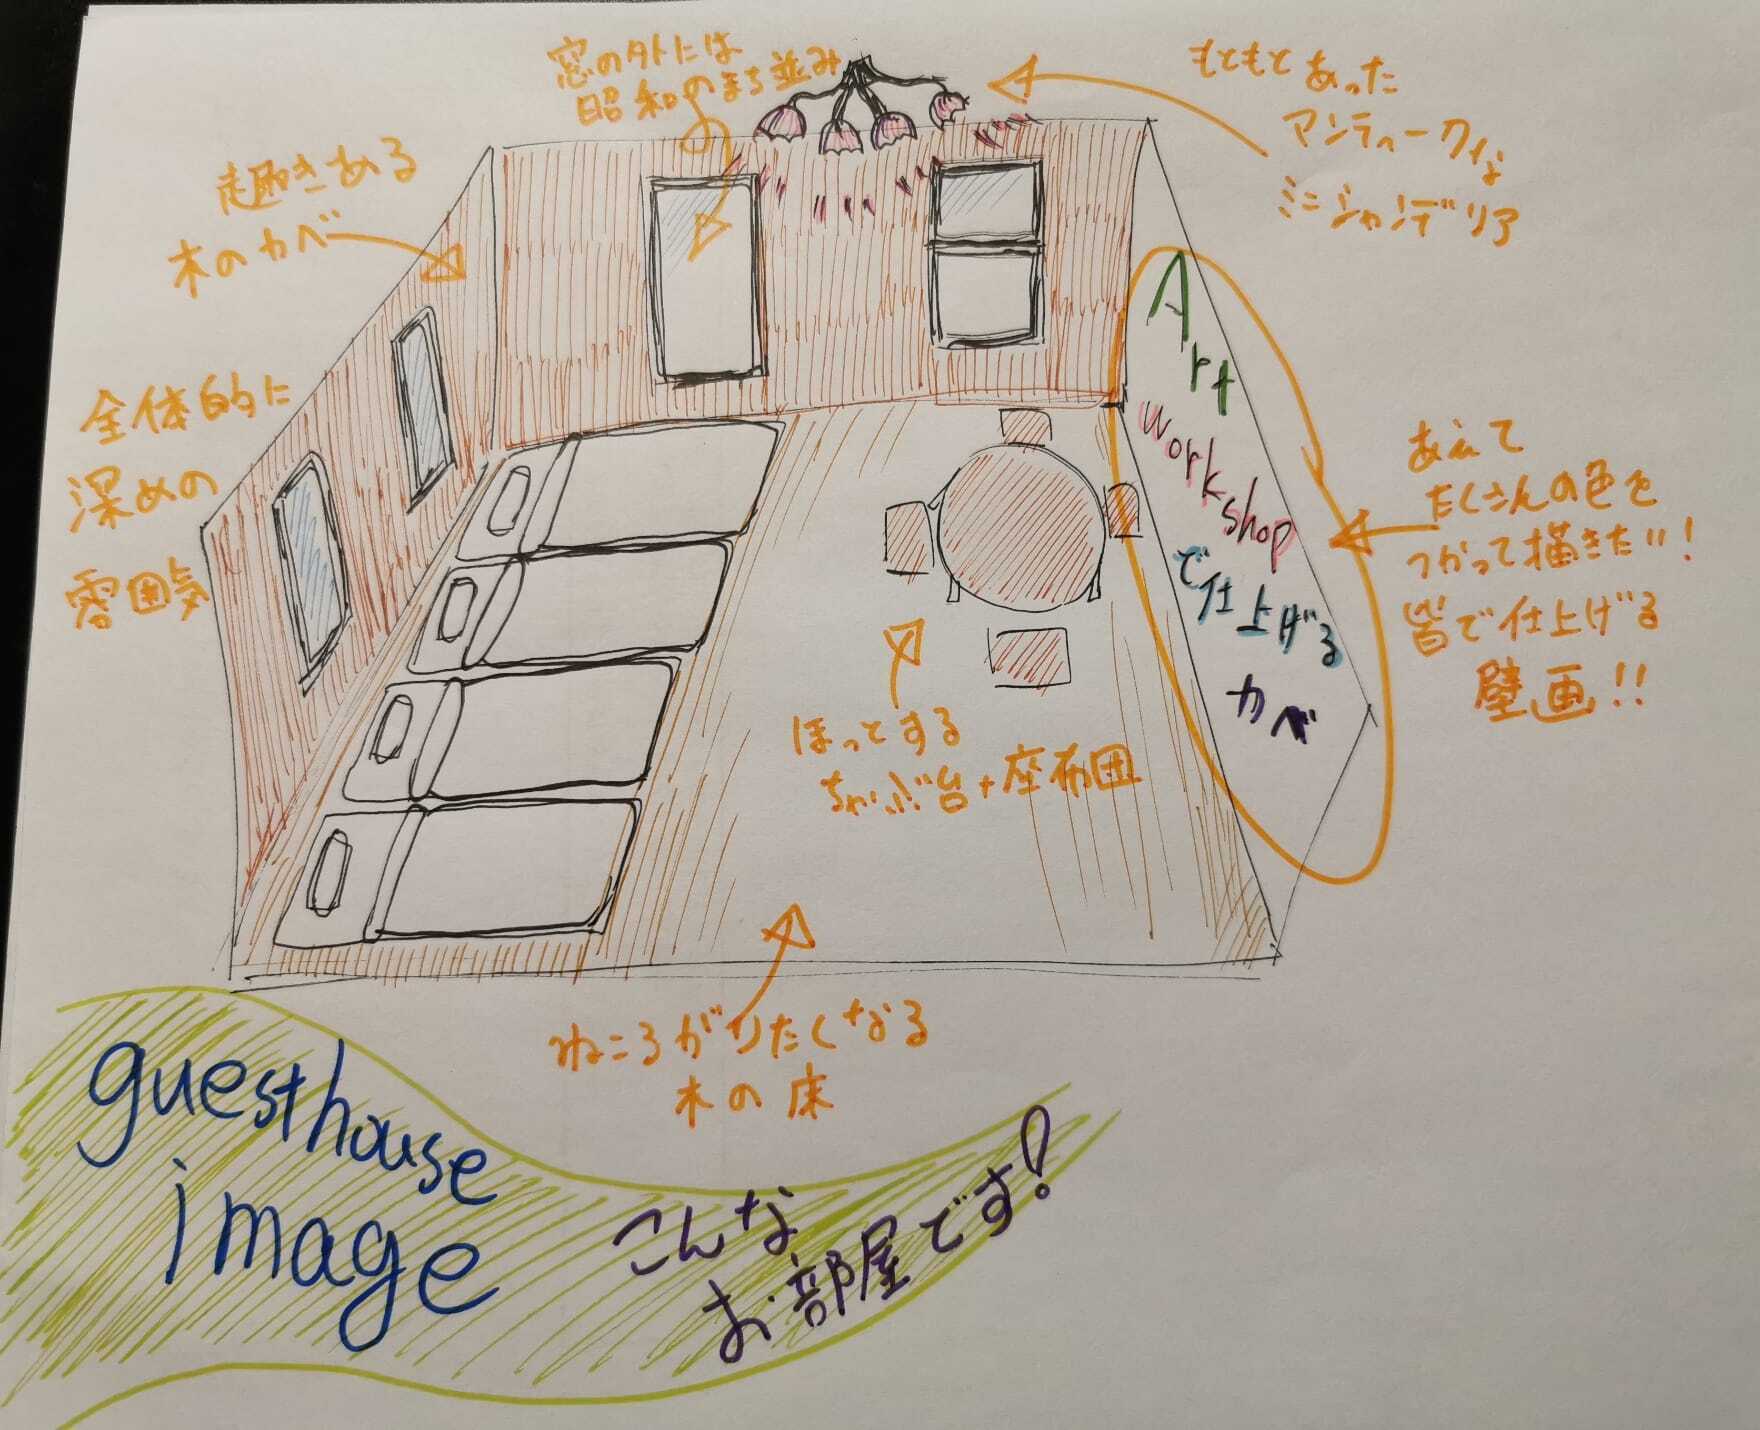 窓の外には
昭和のまち並み
もともとあった
アンティークな
ミニシャンデリア
趣きある
木のカベ
全体的に
深めの
雰囲気
Art
workshop
で仕上げる
カベ
あえて
たくさんの色を
つかって描きたい!
皆で仕上げる
壁画!!
ほっとする
ちゃぶ台+座布団
ねころがりたくなる
木の床
guesthouse
image
こんな
お部屋です!